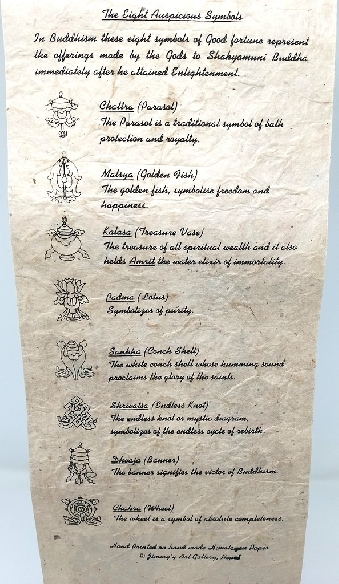 The Eight Auspicious Symbols
In Buddhism these eight symbols of Good fortune represent
the offerings made by the Gods to Shakyamuni Buddha
immediately after he attained Enlightenment.
Chattra (Parasol)
The Parasol is a traditional symbol of both
protection and royalty.
Matsya (Golden Fish)
The golden fish, symbolise freedom and
happiness.
Kalasa (Treasure Vase)
The treasure of all spiritual wealth and it also
holds Amrit the water elixir of immortality.
Padma (Lotus)
Symbolizes of purity.
Sankha (Conch Shell)
The white conch shell whose humming sound
proclaims the glory of the saints.
Shrivatsa (Endless Knot)
The endless knot or mystic diagram,
symbolizes of the endless cycle of rebirth.
Dhvaja (Banner)
The banner signifies the victor of Buddhism.
Chakra (Wheel)
The wheel is a symbol of absolute completeness.
Hand Printed on hand made Himalayan Paper
Art Gallery, Nepal